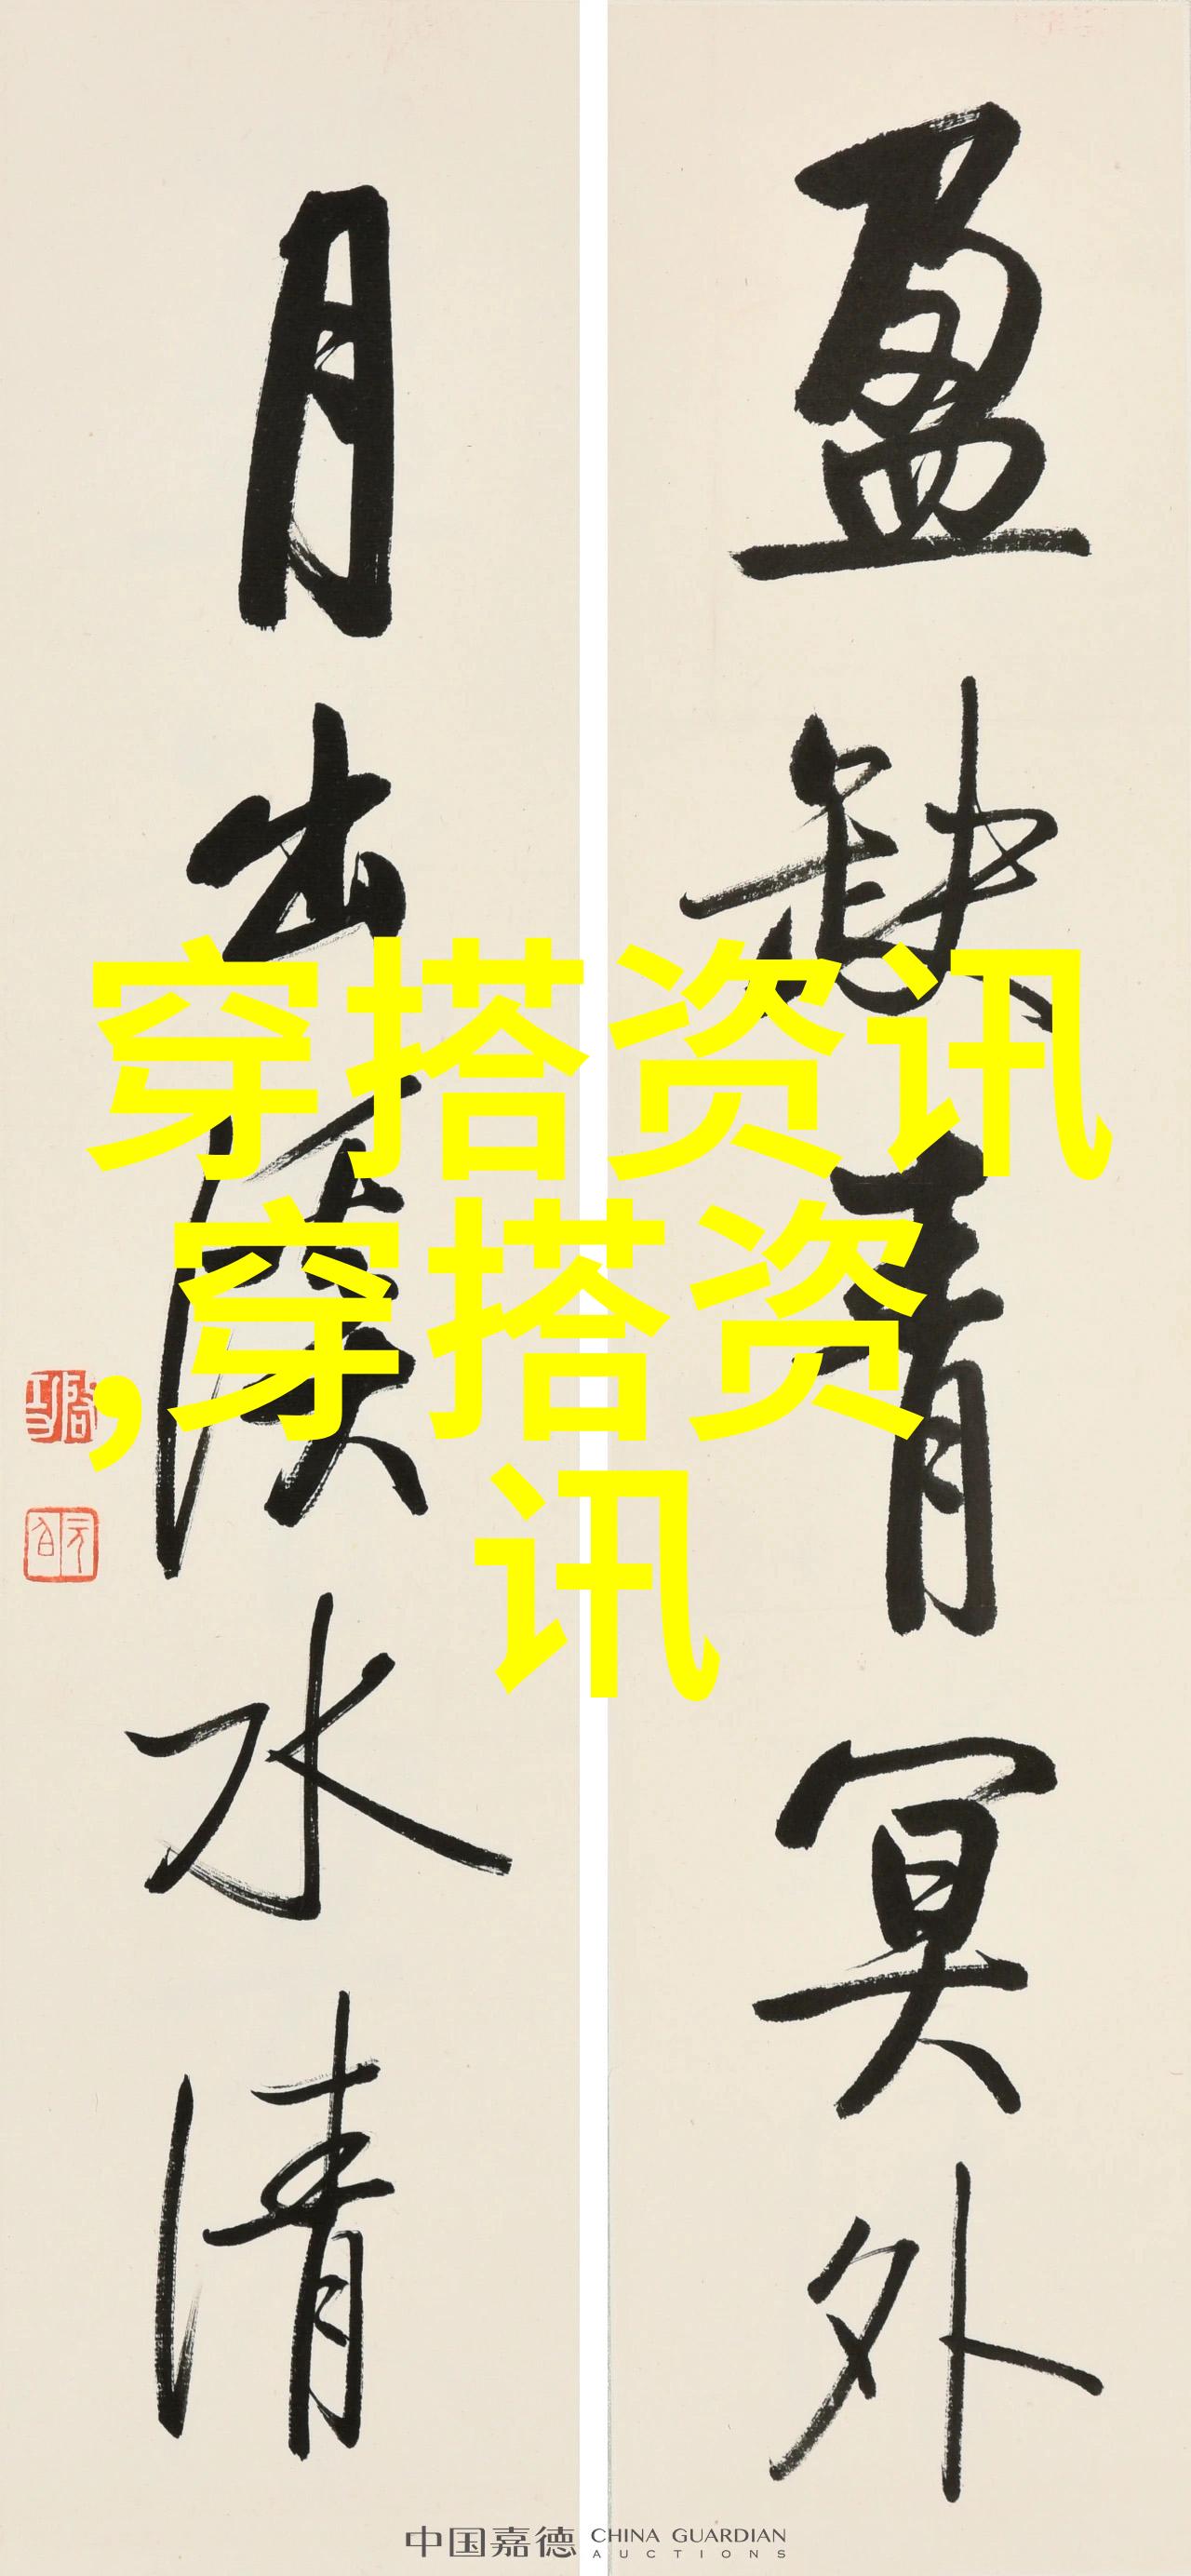 盈缺青冥外
月出溪水清
穿搭资讯
,穿搭资
讯
中国嘉德 CHINA GUARDIAN
AUCTIONS